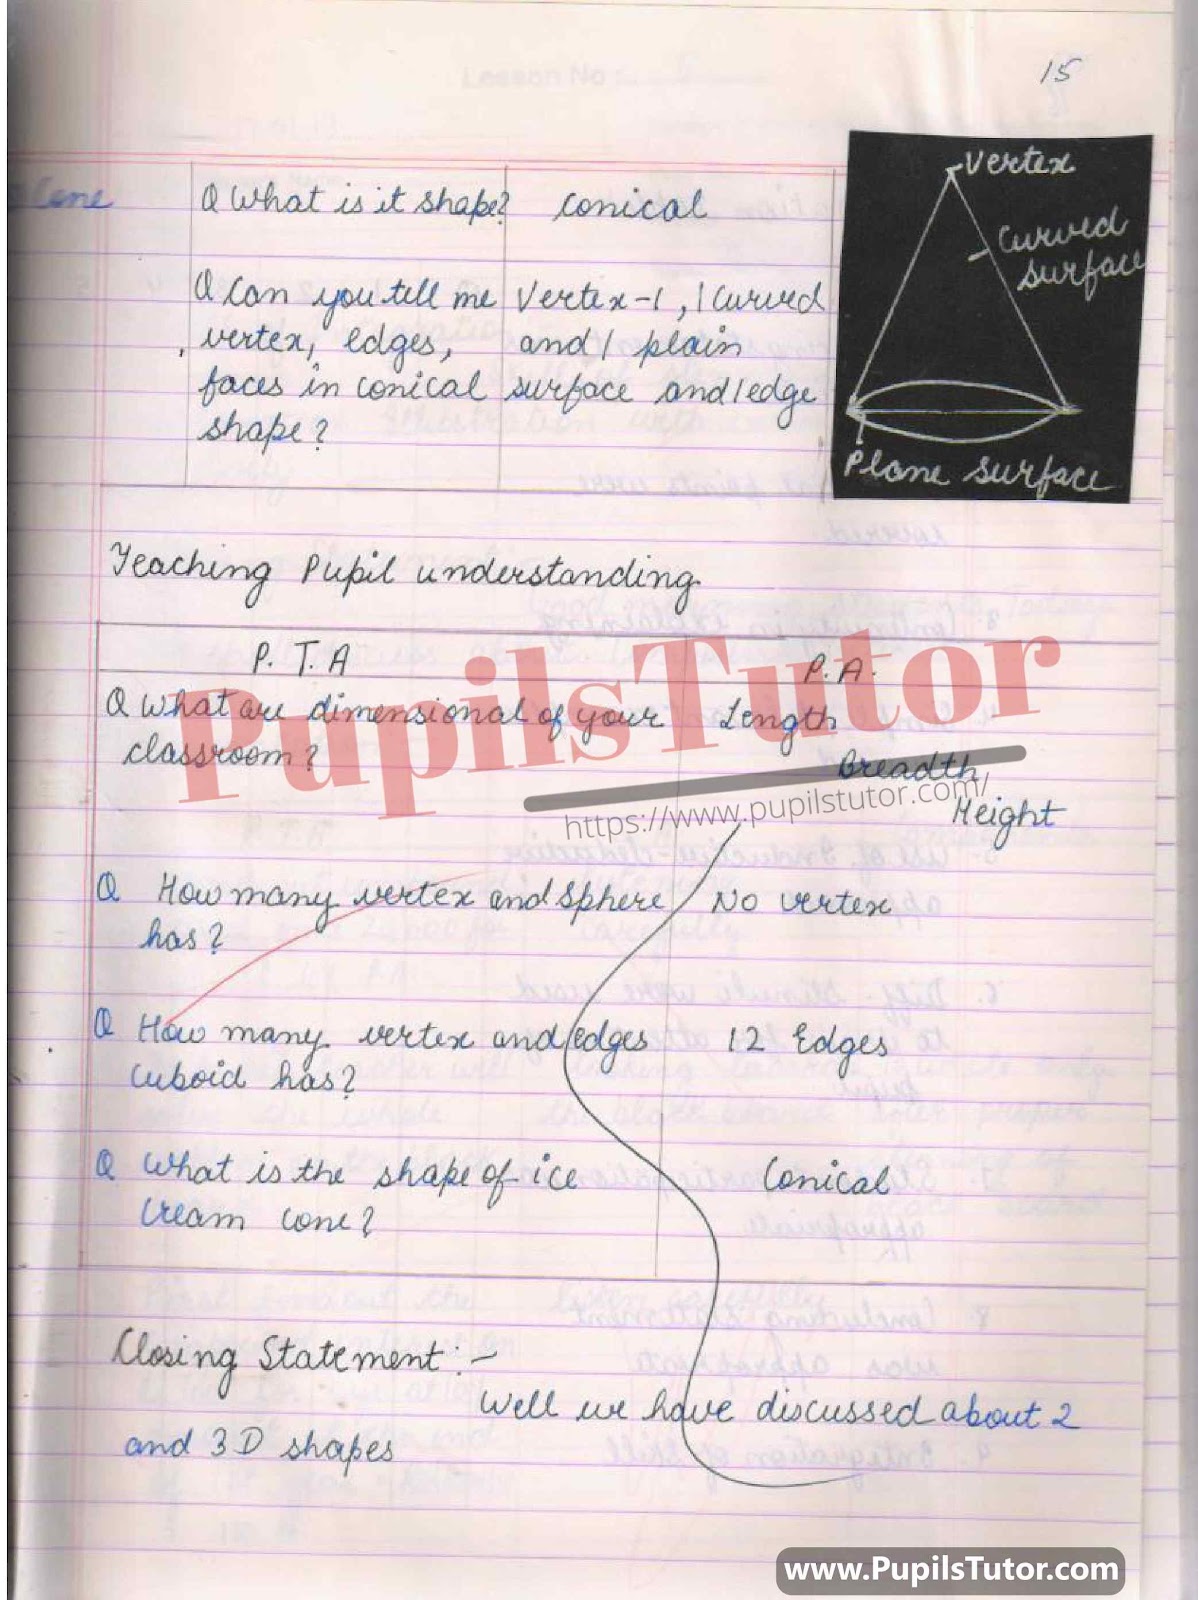 15
Cone
Q What is it shape? conical
Q Can you tell me Vertex-1, 1 curved
vertex, edges, and 1 plain
faces in conical surface and 1 edge
shape?
Vertex
Curved
surface
Plane surface
Teaching Pupil understanding.
P. T. A P.A.
Q What are dimensional of your Length
classroom? Breadth
Height
Q How many vertex and sphere No vertex
has?
Q How many vertex and edges 12 Edges
cuboid has?
Q What is the shape of ice Conical
cream cone?
Closing Statement :-
Well we have discussed about 2
and 3D shapes
PupilsTutor
https://www.pupilstutor.com/
www.PupilsTutor.com